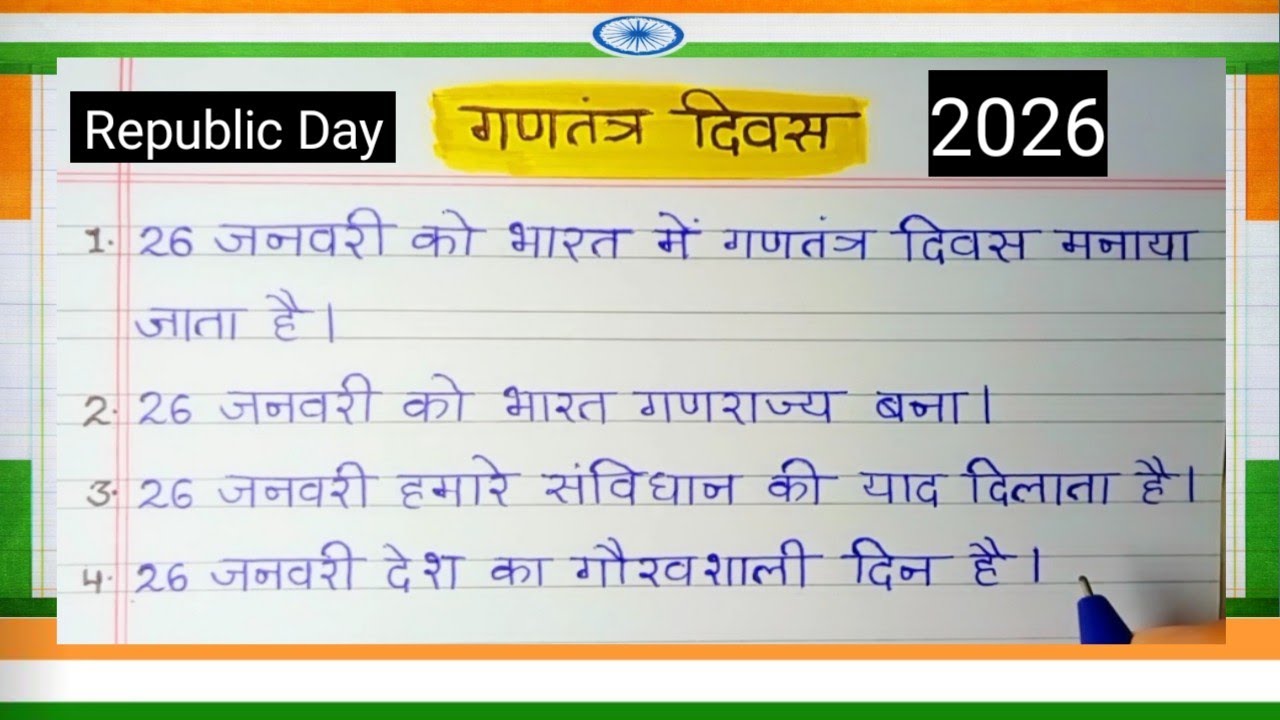 Republic Day गणतंत्र दिवस 2026
1. 26 जनवरी को भारत में गणतंत्र दिवस मनाया
जाता है।
2. 26 जनवरी को भारत गणराज्य बना।
3. 26 जनवरी हमारे संविधान की याद दिलाता है।
4. 26 जनवरी देश का गौरवशाली दिन है।